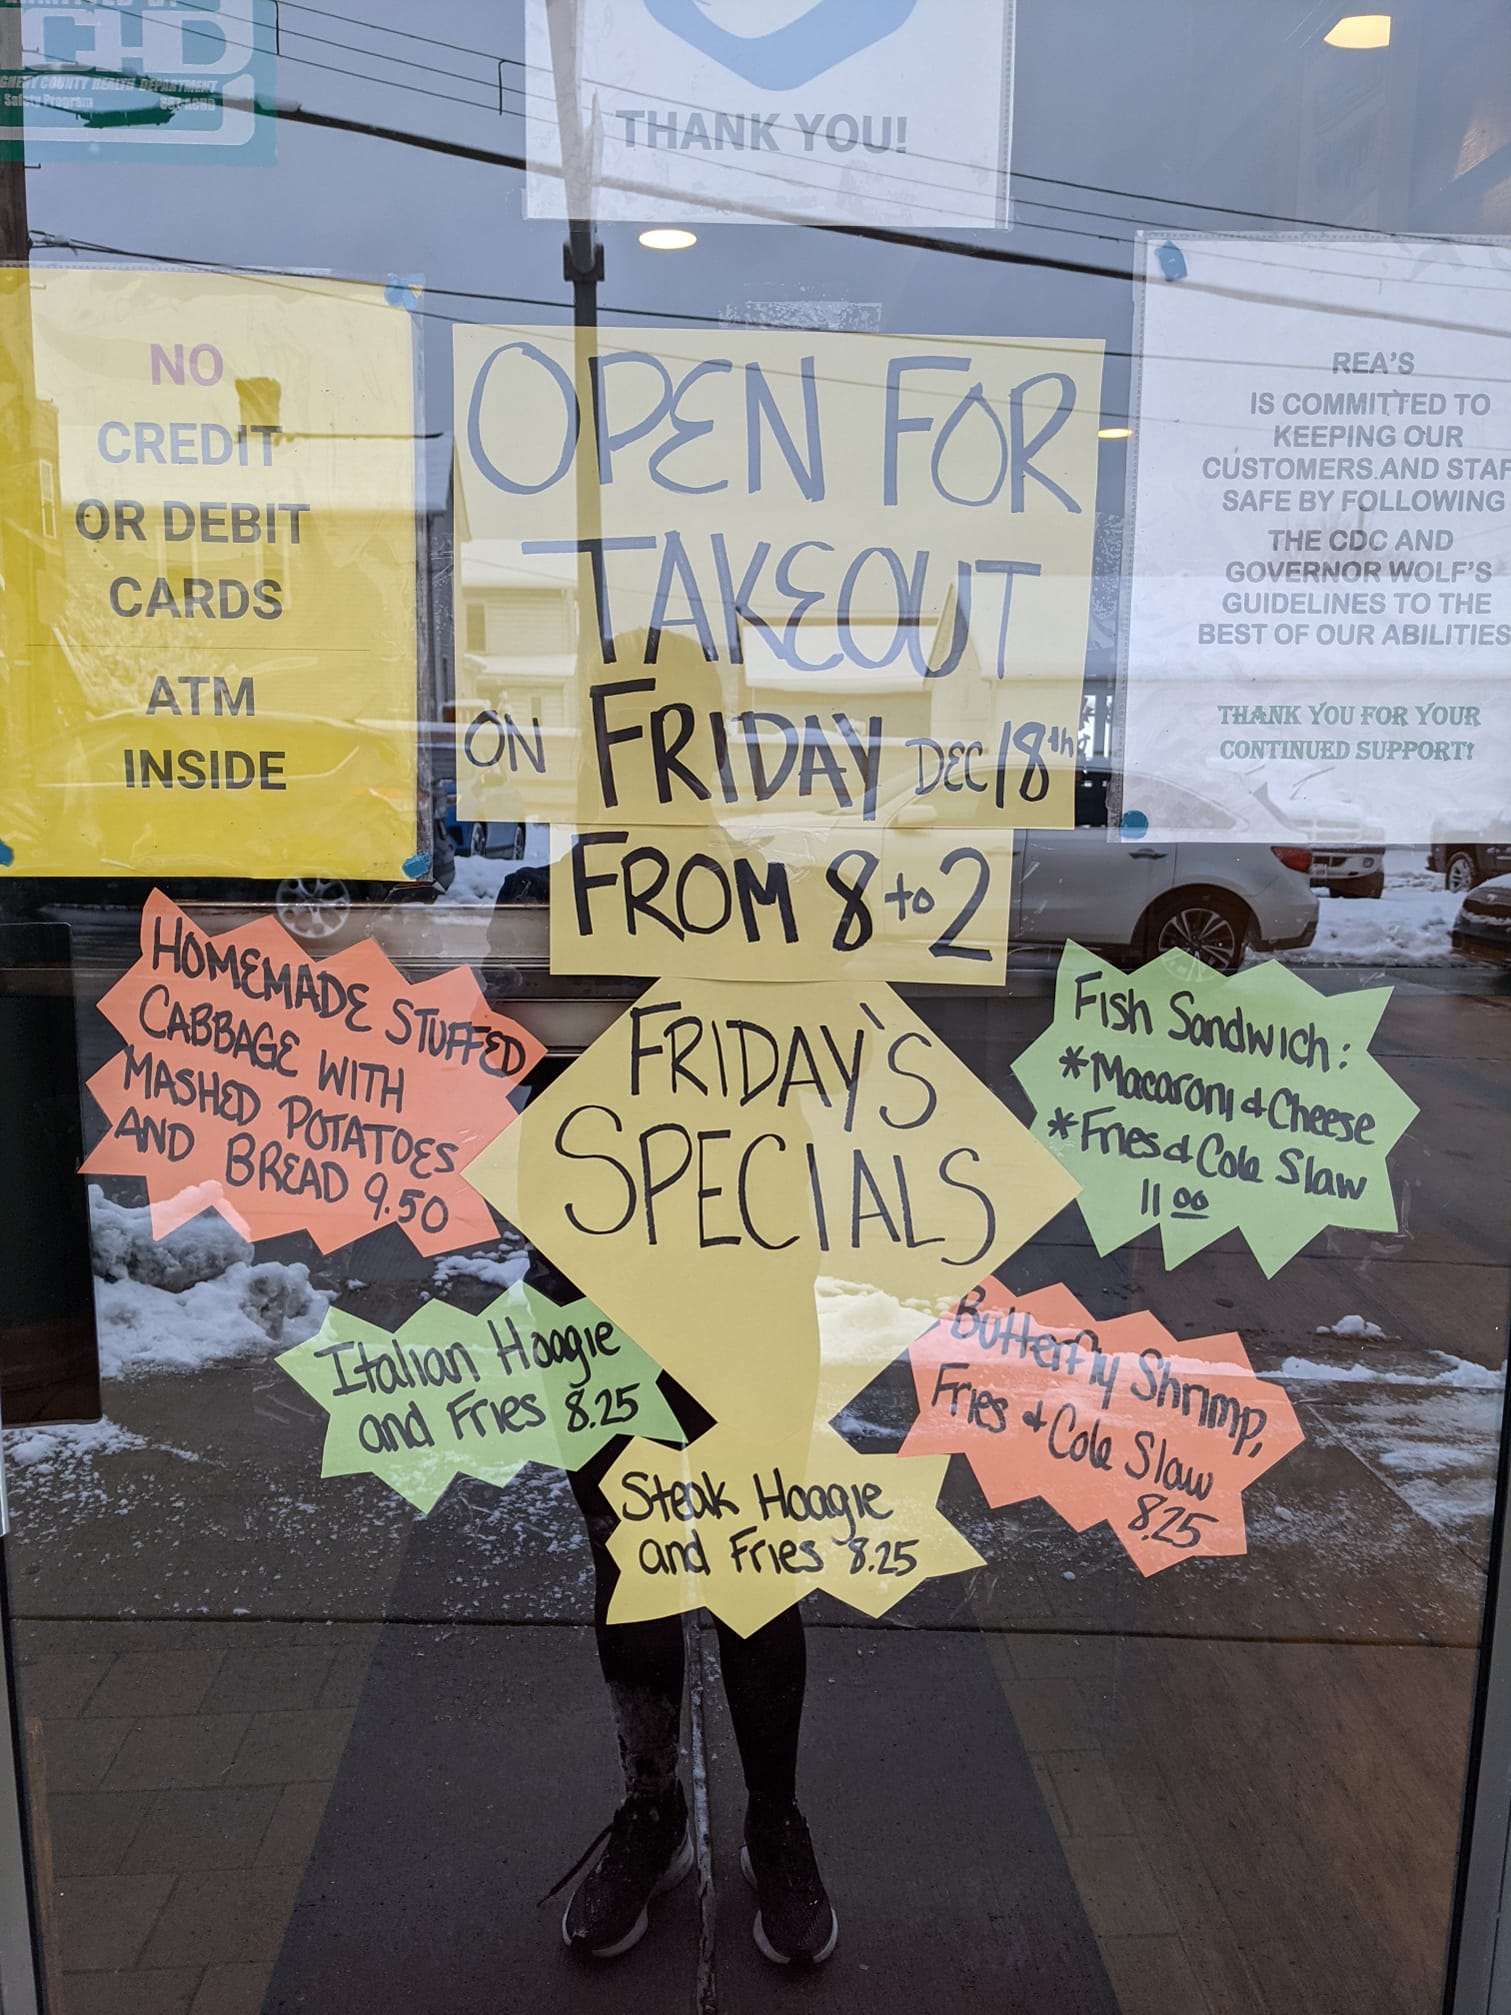 COUNTY HEALTH DEPARTMENT
Safety Program
THANK YOU!
NO
CREDIT
OR DEBIT
CARDS
ATM
INSIDE
OPEN FOR
TAKEOUT
ON FRIDAY DEC 18th
FROM 8 to 2
REA'S
IS COMMITTED TO
KEEPING OUR
CUSTOMERS AND STAF
SAFE BY FOLLOWING
THE CDC AND
GOVERNOR WOLF'S
GUIDELINES TO THE
BEST OF OUR ABILITIES
THANK YOU FOR YOUR
CONTINUED SUPPORT!
HOMEMADE STUFFED
CABBAGE WITH
MASHED POTATOES
AND BREAD 9.50
FRIDAY'S
SPECIALS
Fish Sandwich:
*Macaroni & Cheese
*Fries & Cole Slaw
11 00
Italian Hoagie
and Fries 8.25
Butterfly Shrimp,
Fries & Cole Slaw
8.25
Steak Hoagie
and Fries 8.25